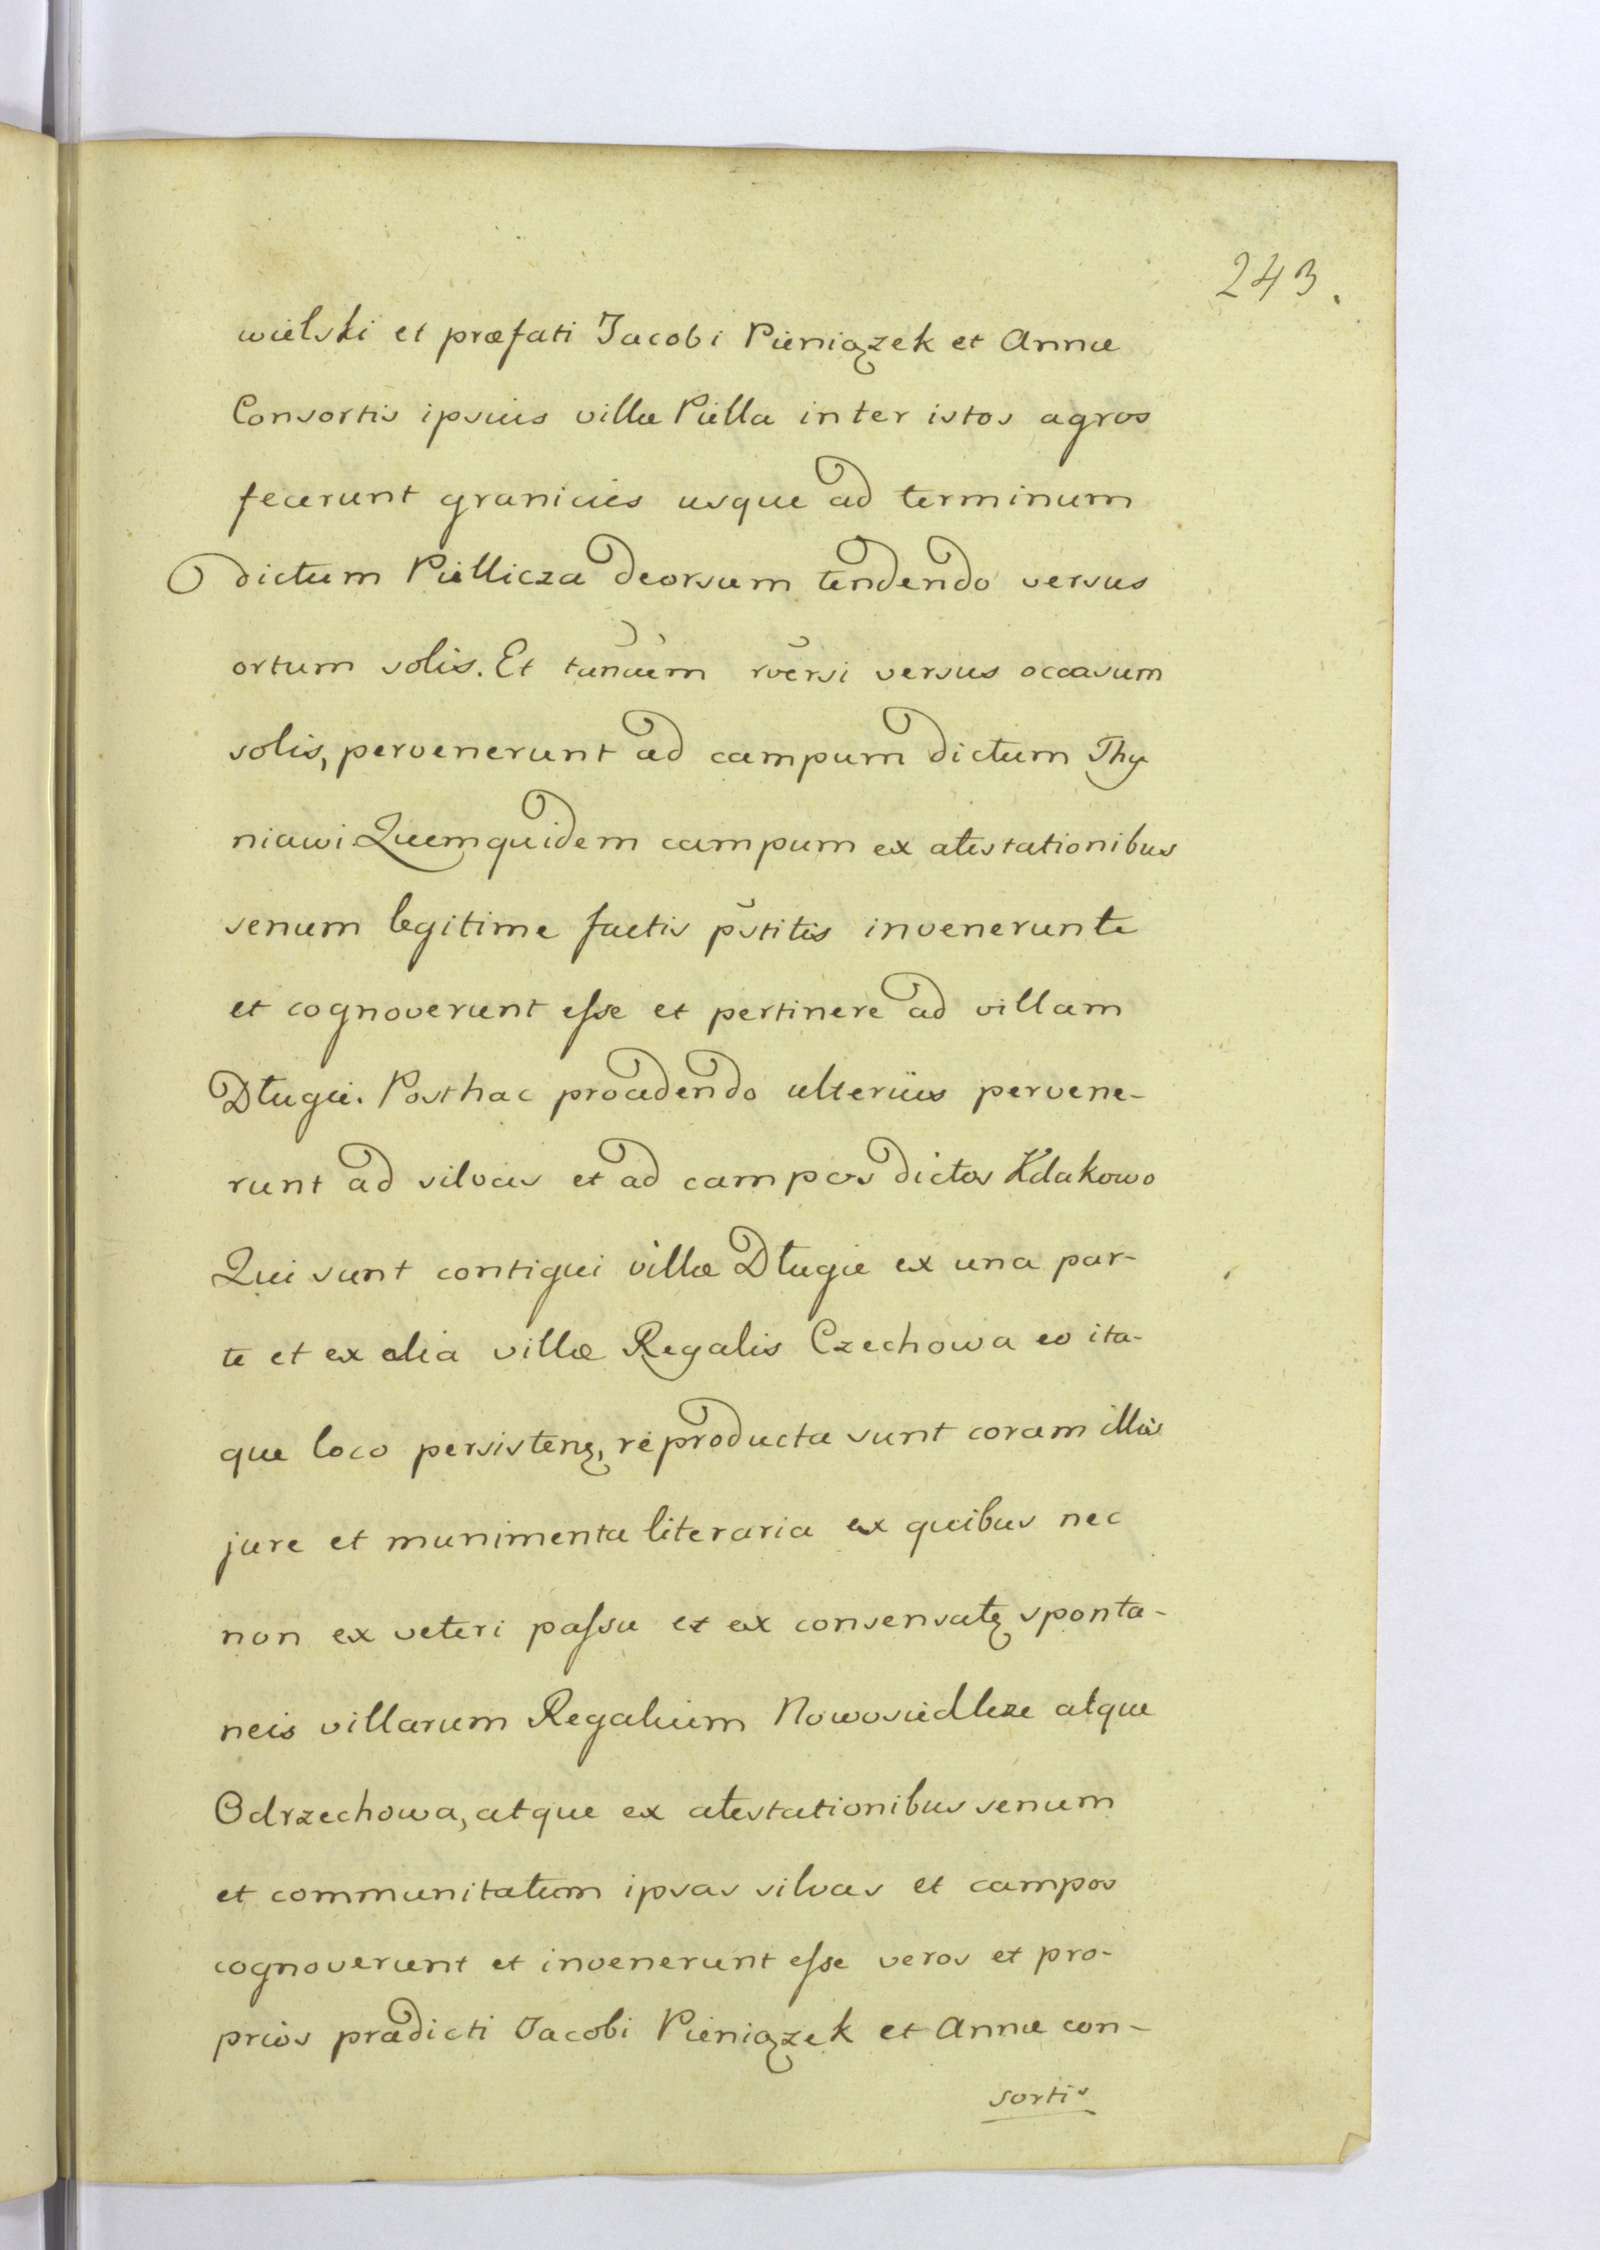 243.
wielski et præfati Jacobi Pieniązek et Annæ
Consortis ipsius villæ Piella inter istos agros
fecerunt granicies usque ad terminum
dictum Piellicza deorsum tendendo versus
ortum solis. Et tandem rversi versus occasum
solis, pervenerunt ad campum dictum Thy
niawi Quemquidem campum ex atestationibus
senum legitime factis pstitis invenerunt
et cognoverunt esse et pertinere ad villam
Długie. Posthac procedendo ulterius pervene-
runt ad silvas et ad campos dictos Kdakowo
Qui sunt contigui villæ Długie ex una par-
te et ex alia villæ Regalis Czechowa eo ita-
que loco persisten, reproducta sunt coram illis
jure et munimenta literaria ex quibus nec
non ex veteri passu et ex consensat sponta-
neis villarum Regalium Nowosiedlcze atque
Odrzechowa, atque ex atestationibus senum
et communitatum ipsas silvas et campos
cognoverunt et invenerunt esse veros et pro-
prios prædicti Jacobi Pieniązek et Annæ con-
sortis